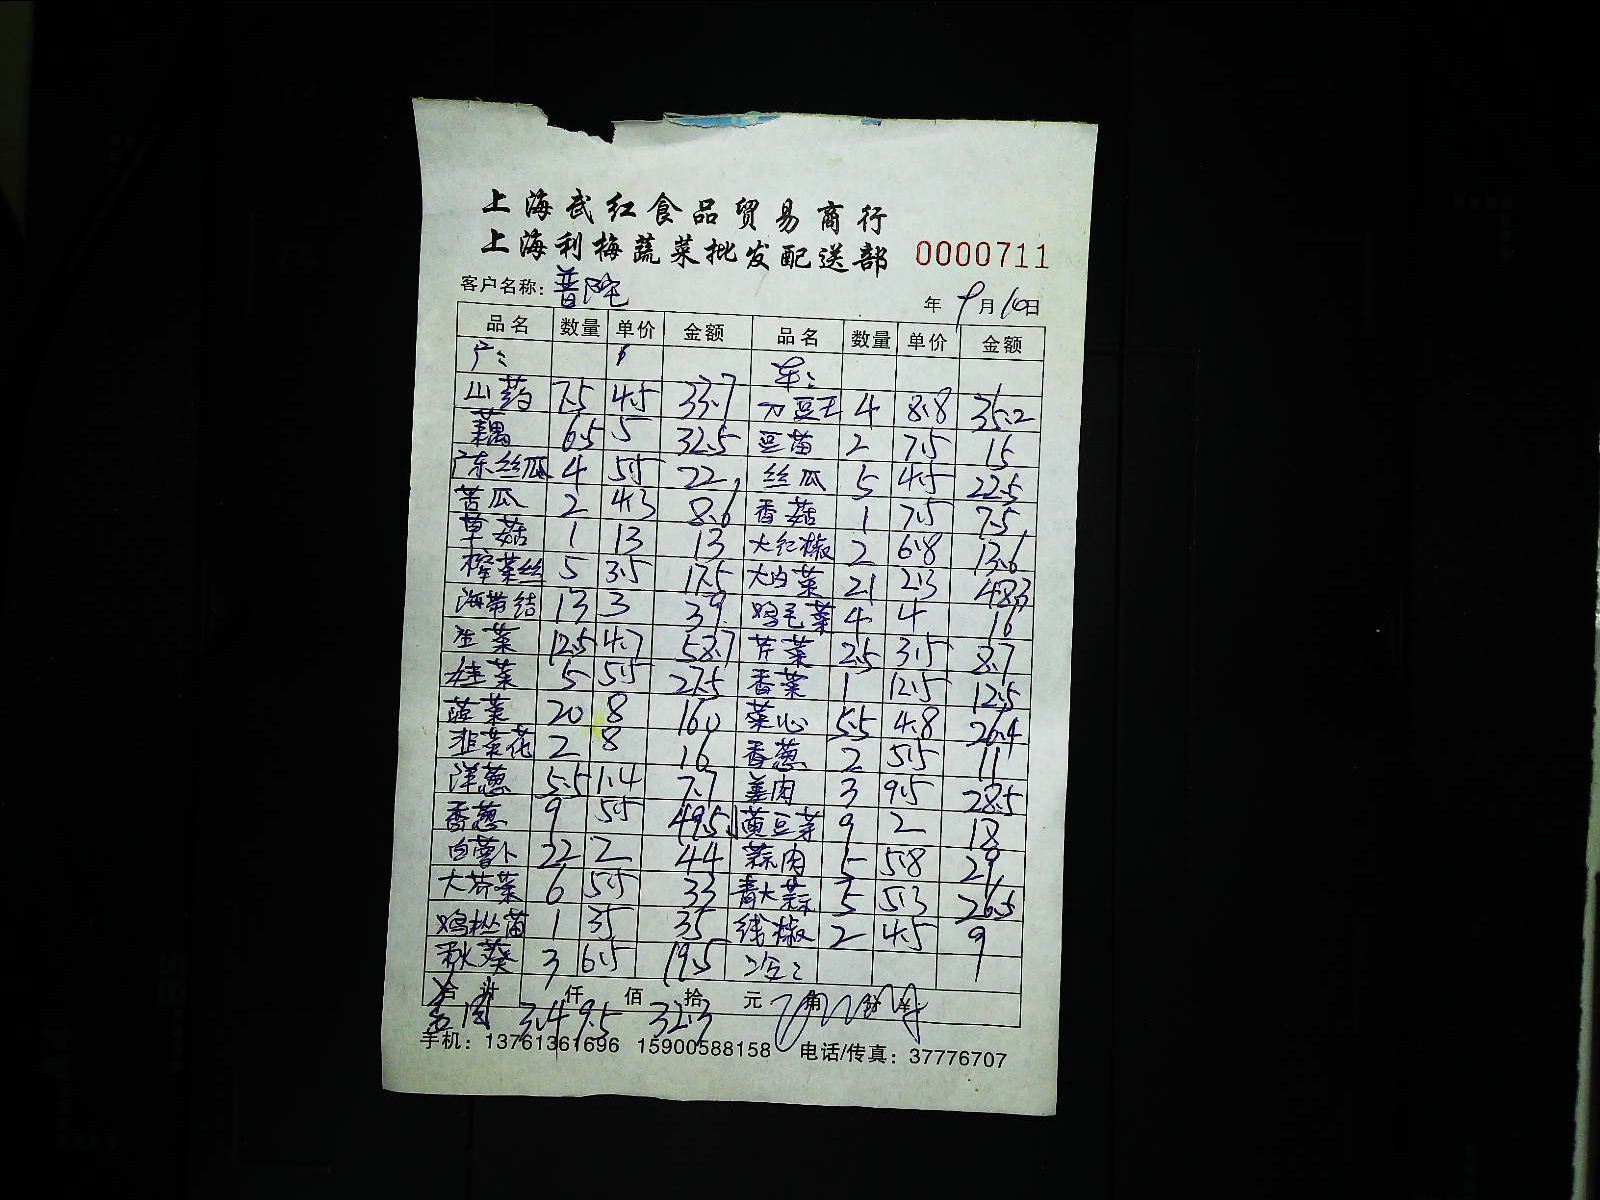 上海武红食品贸易商行
上海利梅蔬菜批发配送部 0000711
客户名称: 普陀 年 9月10日
品名 数量 单价 金额 品名 数量 单价 金额
广: 车:
山药 7.5 4.5 33.7 刀豆王 4 8.8 35.2
藕 6.5 5 32.5 豆苗 2 7.5 15
广东丝瓜 4 5.5 22 丝瓜 5 4.5 22.5
苦瓜 2 4.3 8.6 香菇 1 7.5 7.5
草菇 1 13 13 大红椒 2 6.8 13.6
榨菜丝 5 3.5 17.5 大白菜 21 2.3 48.3
海带结 13 3 39 鸡毛菜 4 4 16
生菜 12.5 4.7 58.7 芹菜 2.5 3.5 8.7
娃菜 5 5.5 27.5 香菜 1 12.5 12.5
菠菜 20 8 160 菜心 5.5 4.8 26.4
韭菜花 2 8 16 香葱 2 5.5 11
洋葱 5.5 1.4 7.7 姜肉 3 9.5 28.5
香葱 9 5.5 49.5 黄豆芽 9 2 18
白萝卜 22 2 44 蒜肉 5 5.8 29
大芥菜 6 5.5 33 青大蒜 5 5.3 26.5
鸡枞菌 1 35 35 线椒 2 4.5 9
秋葵 3 6.5 19.5
合计 仟 佰 拾 元 角 分 ¥:
姜肉 3.4 9.5 32.3
手机: 13761361696 15900588158 电话/传真: 37776707